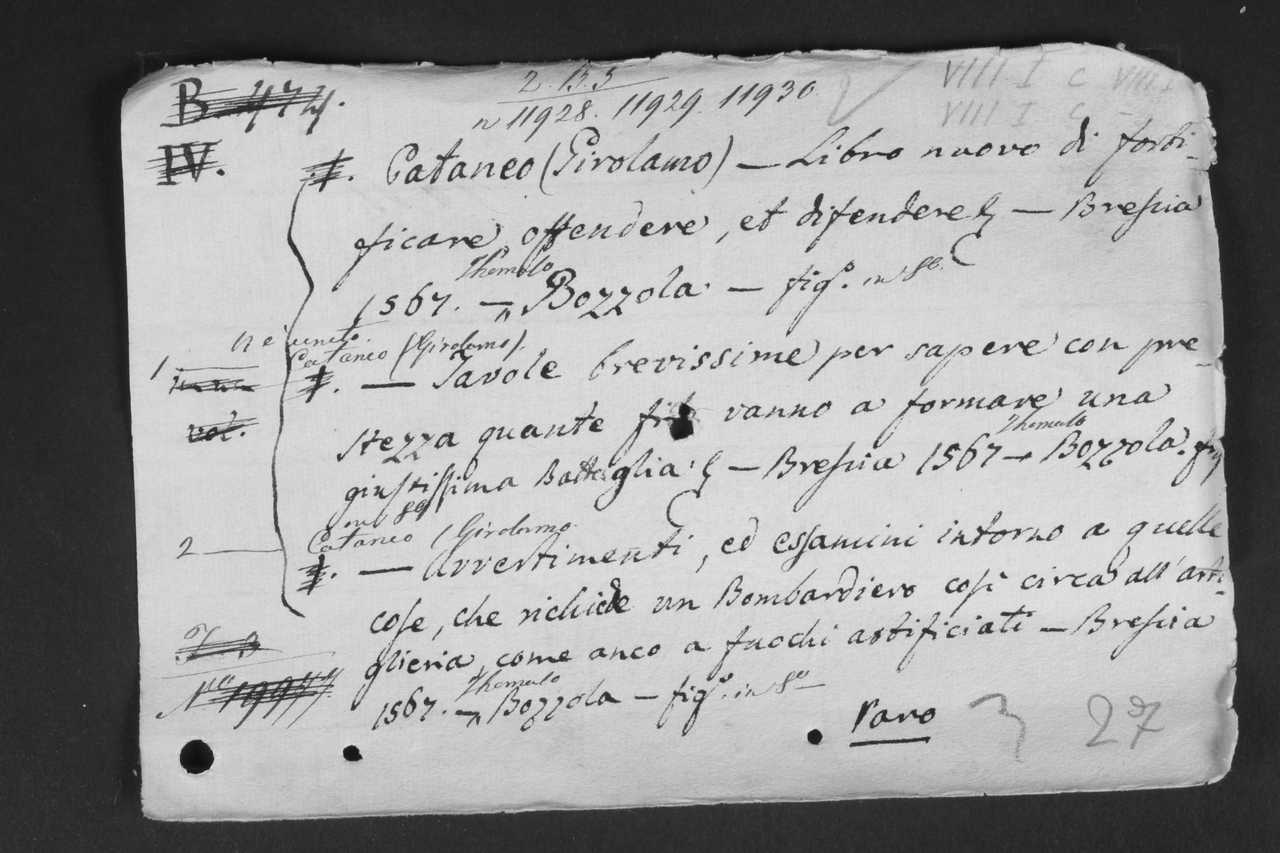 2. 13. 5
B 474.
n 11928. 11929. 11930
VIIII I C VIIII I
VIIII I C
IV.
1. Cataneo (Girolamo) — Libro nuovo di forti-
ficare, offendere, et difendere & — Brescia
Thomaso
1567. — Bozzola — fig.º in 8º.
n è unito.
Cataneo (Girolamo).
1
‡. — Tavole brevissime per sapere con pre-
stezza quante file vanno a formare una
vol.
Thomaso
giustissima Battaglia & — Brescia 1567 — Bozzola. fig
in 8º
Cataneo (Girolamo
2
‡. — Avvertimenti, ed essamini intorno a quelle
cose, che richiede un Bombardiero così circa all'arti
glieria, come anco a fuochi artificiati — Brescia
Thomaso
1567. — Bozzola — fig.º in 8º
raro
3 27